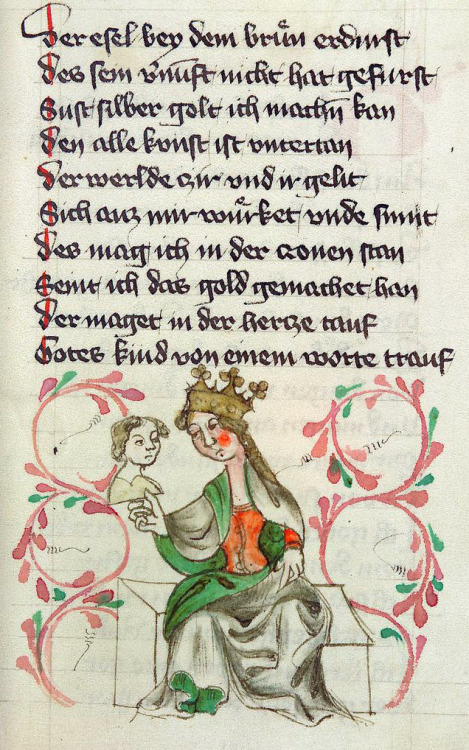 Der esel bey dem brůn erdurst
Des sein v̄nūft nicht hat gefurst
Sust silber golt ich machn̄ kan
Den alle kvnst ist vntertan
Der werlde czir vnd ir gelit
Sich aucz mir wůrket vnde smit
Des mag ich in der cronen stan
Seint ich das gold gemachet han
Der maget in der hercze tauf
Gotes kind von einem worte trauf